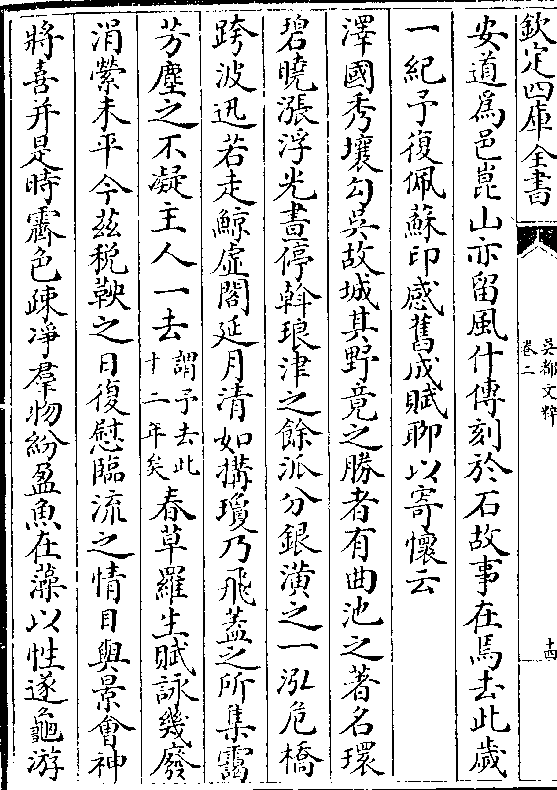 欽定四庫全書
吳都文粹
卷二
十四
安道爲邑崑山亦留風什傳刻於石故事在焉去此歲
一紀予復佩蘇印感舊成賦聊以寄懷云
澤國秀壤勾吳故城其野竟之勝者有曲池之著名環
碧曉漲浮光晝停斡琅津之餘派分銀潢之一泓危橋
跨波迅若走鯨虛閣延月清如搆瓊乃飛葢之所集靄
芳塵之不凝主人一去謂予去此十二年矣春草羅生賦詠幾廢
涓縈未平今兹稅鞅之日復慰臨流之情目與景會神
將喜并是時霽色疎凈羣物紛盈魚在藻以性遂龜游